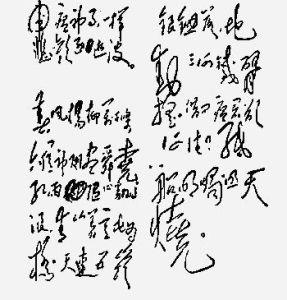 问瘟神事，一样
悲欢逐逝波。
春风杨柳万千条
六亿神州尽舜尧
红雨随心翻作
浪，青山着意化为
桥。天连五岭
银锄落，地
动三河铁臂
摇。借问瘟君欲
何往，纸
船明烛照天
烧。